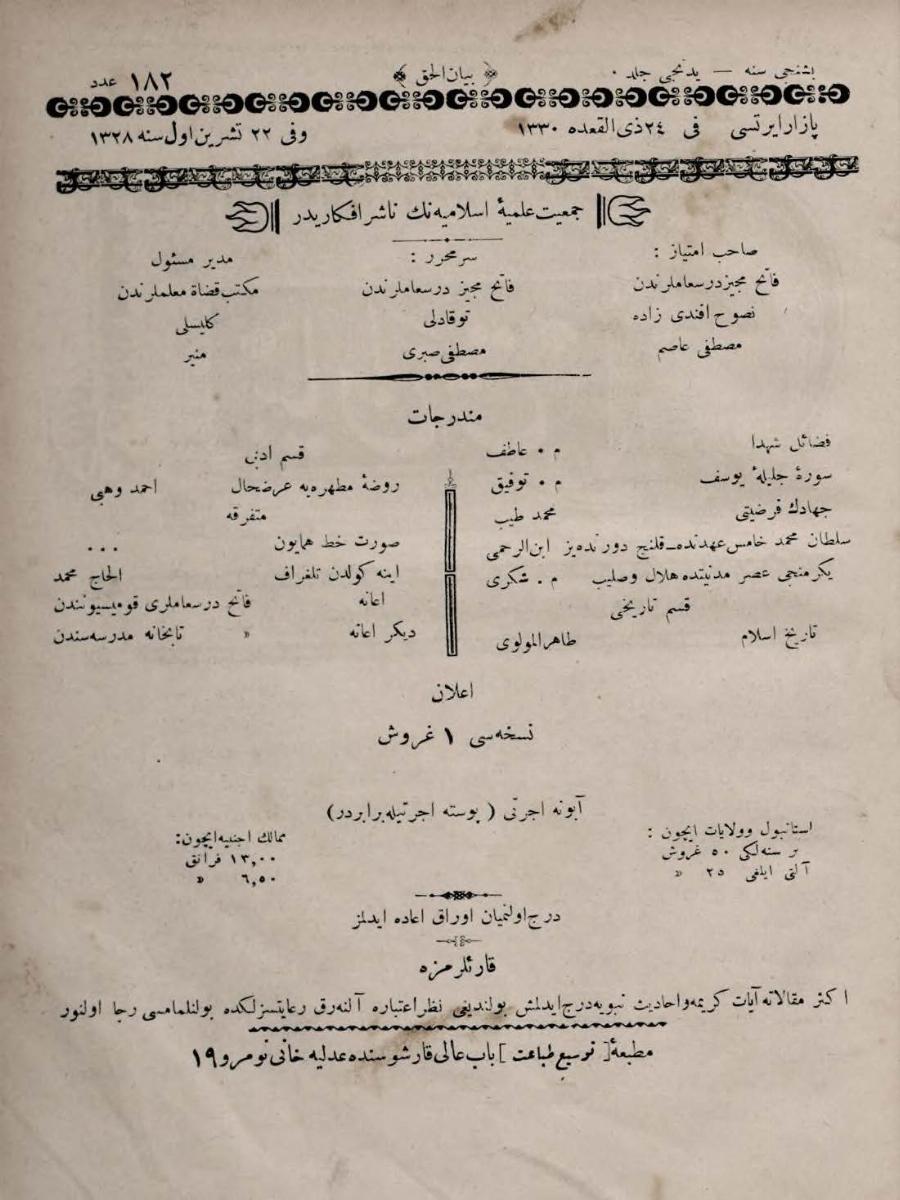 بشنجی سنه — یدنجی جلد ٠ ﴿ بیان الحق ﴾ ١٨٢ عدد
پازار ایرتسی فی ٢٤ ذی القعده ١٣٣٠ وفی ٢٢ تشرین اول سنه ١٣٢٨
جمعیت علمیهٔ اسلامیه نك ناشر افكاریدر
صاحب امتیاز : سر محرر : مدیر مسئول
فاتح مجیز درسعاملرندن فاتح مجیز درسعاملرندن مكتب قضاة معلملرندن
نصوح افندی زاده توقادلی كلیسلی
مصطفی عاصم مصطفی صبری منیر
مندرجات
فضائل شهدا م ٠ عاطف
سورهٔ جلیلهٔ یوسف م ٠ توفیق
جهادك فرضیتی محمد طیب
سلطان محمد خامس عهدنده_قلنج دورنده یز ابن الرحمی
یكرمنجی عصر مدنیتده هلال وصلیب م . شكری
قسم تاریخی
تاریخ اسلام طاهر المولوی
قسم ادبی
روضهٔ مطهره یه عرضحال احمد وهبی
متفرقه
صورت خط همایون ٠٠٠
اینه كولدن تلغراف الحاج محمد
اعانه فاتح درسعاملری قومیسیونندن
دیكر اعانه « تابخانه مدرسه سندن
اعلان
نسخه سی ١ غروش
آبونه اجرتی ( پوسته اجرتیله برابردر )
استانبول وولایات ایچون :
بر سنه لكی ٥٠ غروش
آلتی ایلغی ٢٥ «
ممالك اجنبیه ایچون :
١٣,٠٠ فرانق
٦,٥٠ «
درج اولنمیان اوراق اعاده ایدلمز
قارئلرمزه
اكثر مقالاته آیات كریمه واحادیث نبویه درج ایدلمش بولندیغی نظر اعتباره آلنه رق رعایتسزلكده بولنلمامسی رجا اولنور
مطبعهٔ [ توسیع طباعت ] باب عالی قارشوسنده عدلیه خانی نومرو ١٩